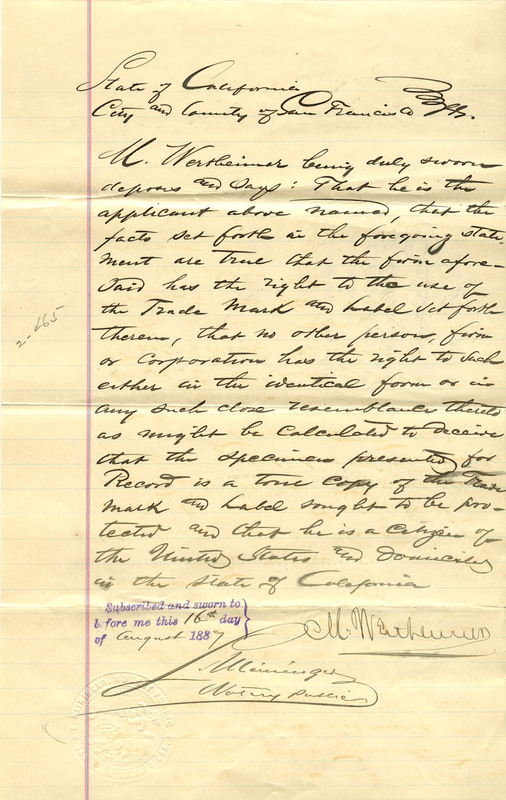 State of California
City and County of San Francisco } ss.
M. Wertheimer being duly sworn
deposes and says: That he is the
applicant above named, that the
facts set forth in the foregoing state
ment are true that the firm afore-
said has the right to the use of
the Trade Mark and Label set forth
therein, that no other person, firm
or corporation has the right to such
either in the identical form or in
any such close resemblance thereto
as might be calculated to deceive
that the specimens presented for
Record is a true copy of the Trade
Mark and Label sought to be pro-
tected and that he is a citizen of
the United States and domiciled
in the State of California
Subscribed and sworn to
before me this 16th day
of August 1887
M. Wertheimer
Notary Public
2-465